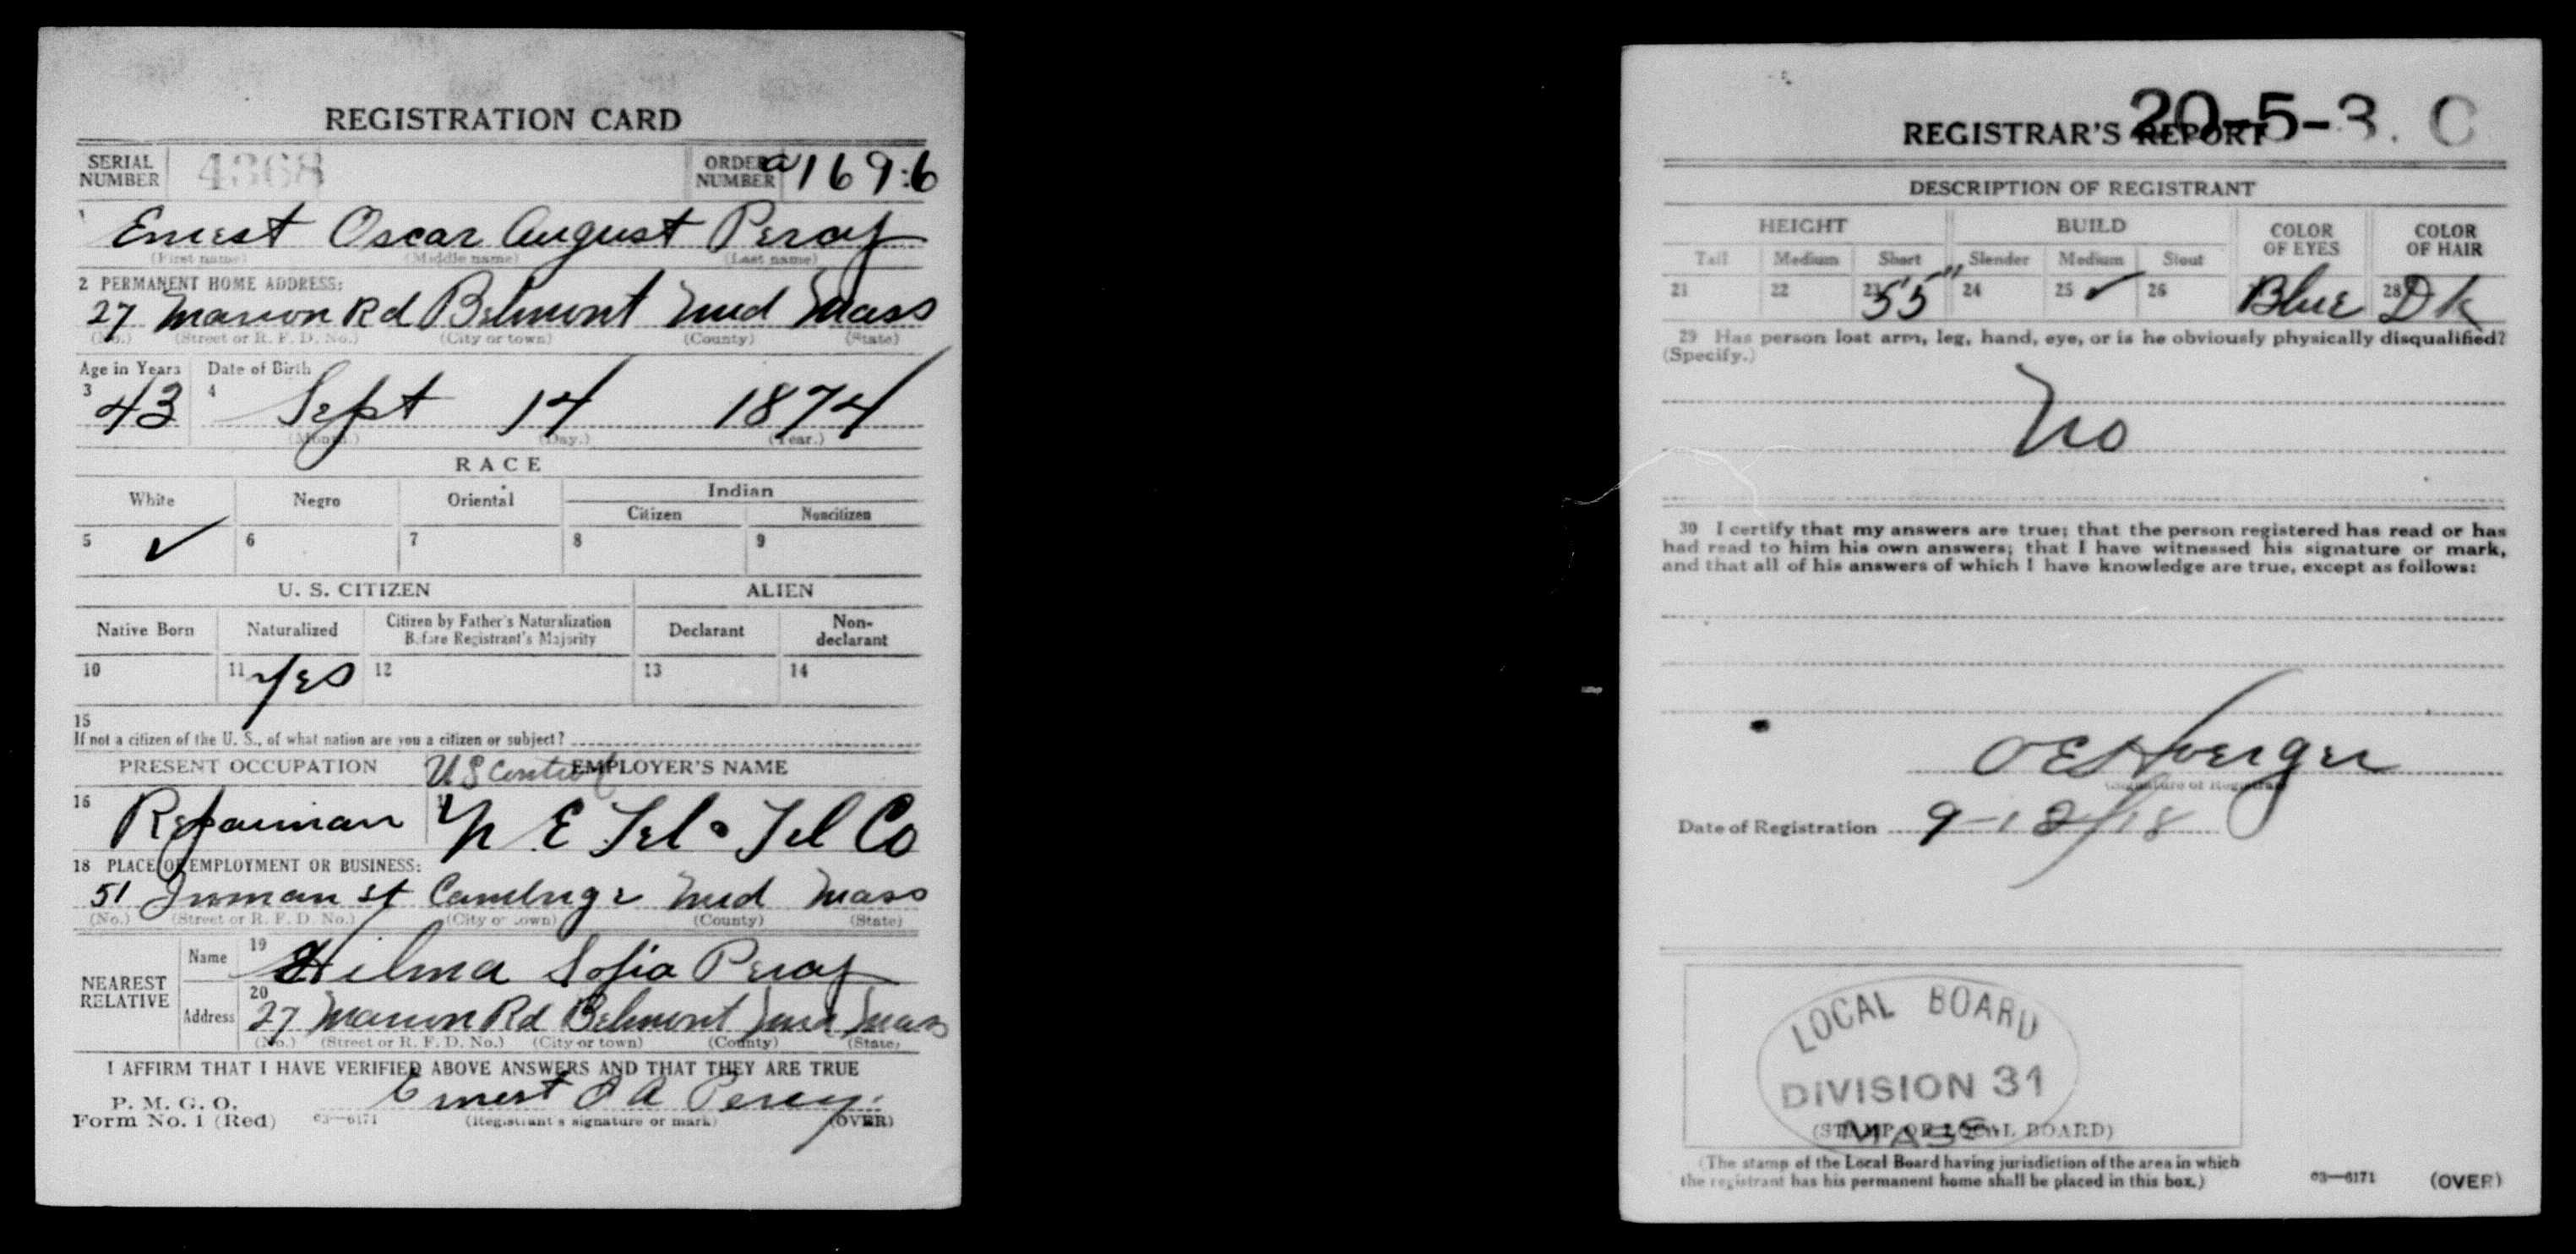 REGISTRATION CARD
SERIAL NUMBER 4368 ORDER NUMBER a1696
1 Ernest Oscar August Percy
(First name) (Middle name) (Last name)
2 PERMANENT HOME ADDRESS:
27 Marion Rd Belmont Mid Mass
(No.) (Street or R. F. D. No.) (City or town) (County) (State)
Age in Years Date of Birth
3 43 4 Sept 14 1874
(Month.) (Day.) (Year.)
RACE
White Negro Oriental Indian
Citizen Noncitizen
5 ✓ 6 7 8 9
U. S. CITIZEN ALIEN
Native Born Naturalized Citizen by Father's Naturalization Before Registrant's Majority Declarant Non-declarant
10 11 Yes 12 13 14
15
If not a citizen of the U. S., of what nation are you a citizen or subject?
PRESENT OCCUPATION US Control EMPLOYER'S NAME
16 Repairman N E Tel & Tel Co
18 PLACE OF EMPLOYMENT OR BUSINESS:
51 Inman st Cambrige Mid Mass
(No.) (Street or R. F. D. No.) (City or town) (County) (State)
NEAREST RELATIVE Name 19 Hilma Sofia Percy
Address 20 27 Marion Rd Belmont Mid Mass
(No.) (Street or R. F. D. No.) (City or town) (County) (State)
I AFFIRM THAT I HAVE VERIFIED ABOVE ANSWERS AND THAT THEY ARE TRUE
P. M. G. O.
Form No. 1 (Red) 03—6171 Ernest O A Percy
(Registrant's signature or mark) (OVER)
20-5-3. C
REGISTRAR'S REPORT
DESCRIPTION OF REGISTRANT
HEIGHT BUILD COLOR OF EYES COLOR OF HAIR
Tall Medium Short Slender Medium Stout
21 22 23 5'5" 24 25 ✓ 26 Blue 28 Dk
29 Has person lost arm, leg, hand, eye, or is he obviously physically disqualified?
(Specify.)
No
30 I certify that my answers are true; that the person registered has read or has
had read to him his own answers; that I have witnessed his signature or mark,
and that all of his answers of which I have knowledge are true, except as follows:
(Signature of Registrar)
Date of Registration 9-12/18
LOCAL BOARD
DIVISION 31
MASS.
(STAMP OF LOCAL BOARD)
(The stamp of the Local Board having jurisdiction of the area in which
the registrant has his permanent home shall be placed in this box.)
03—6171 (OVER)